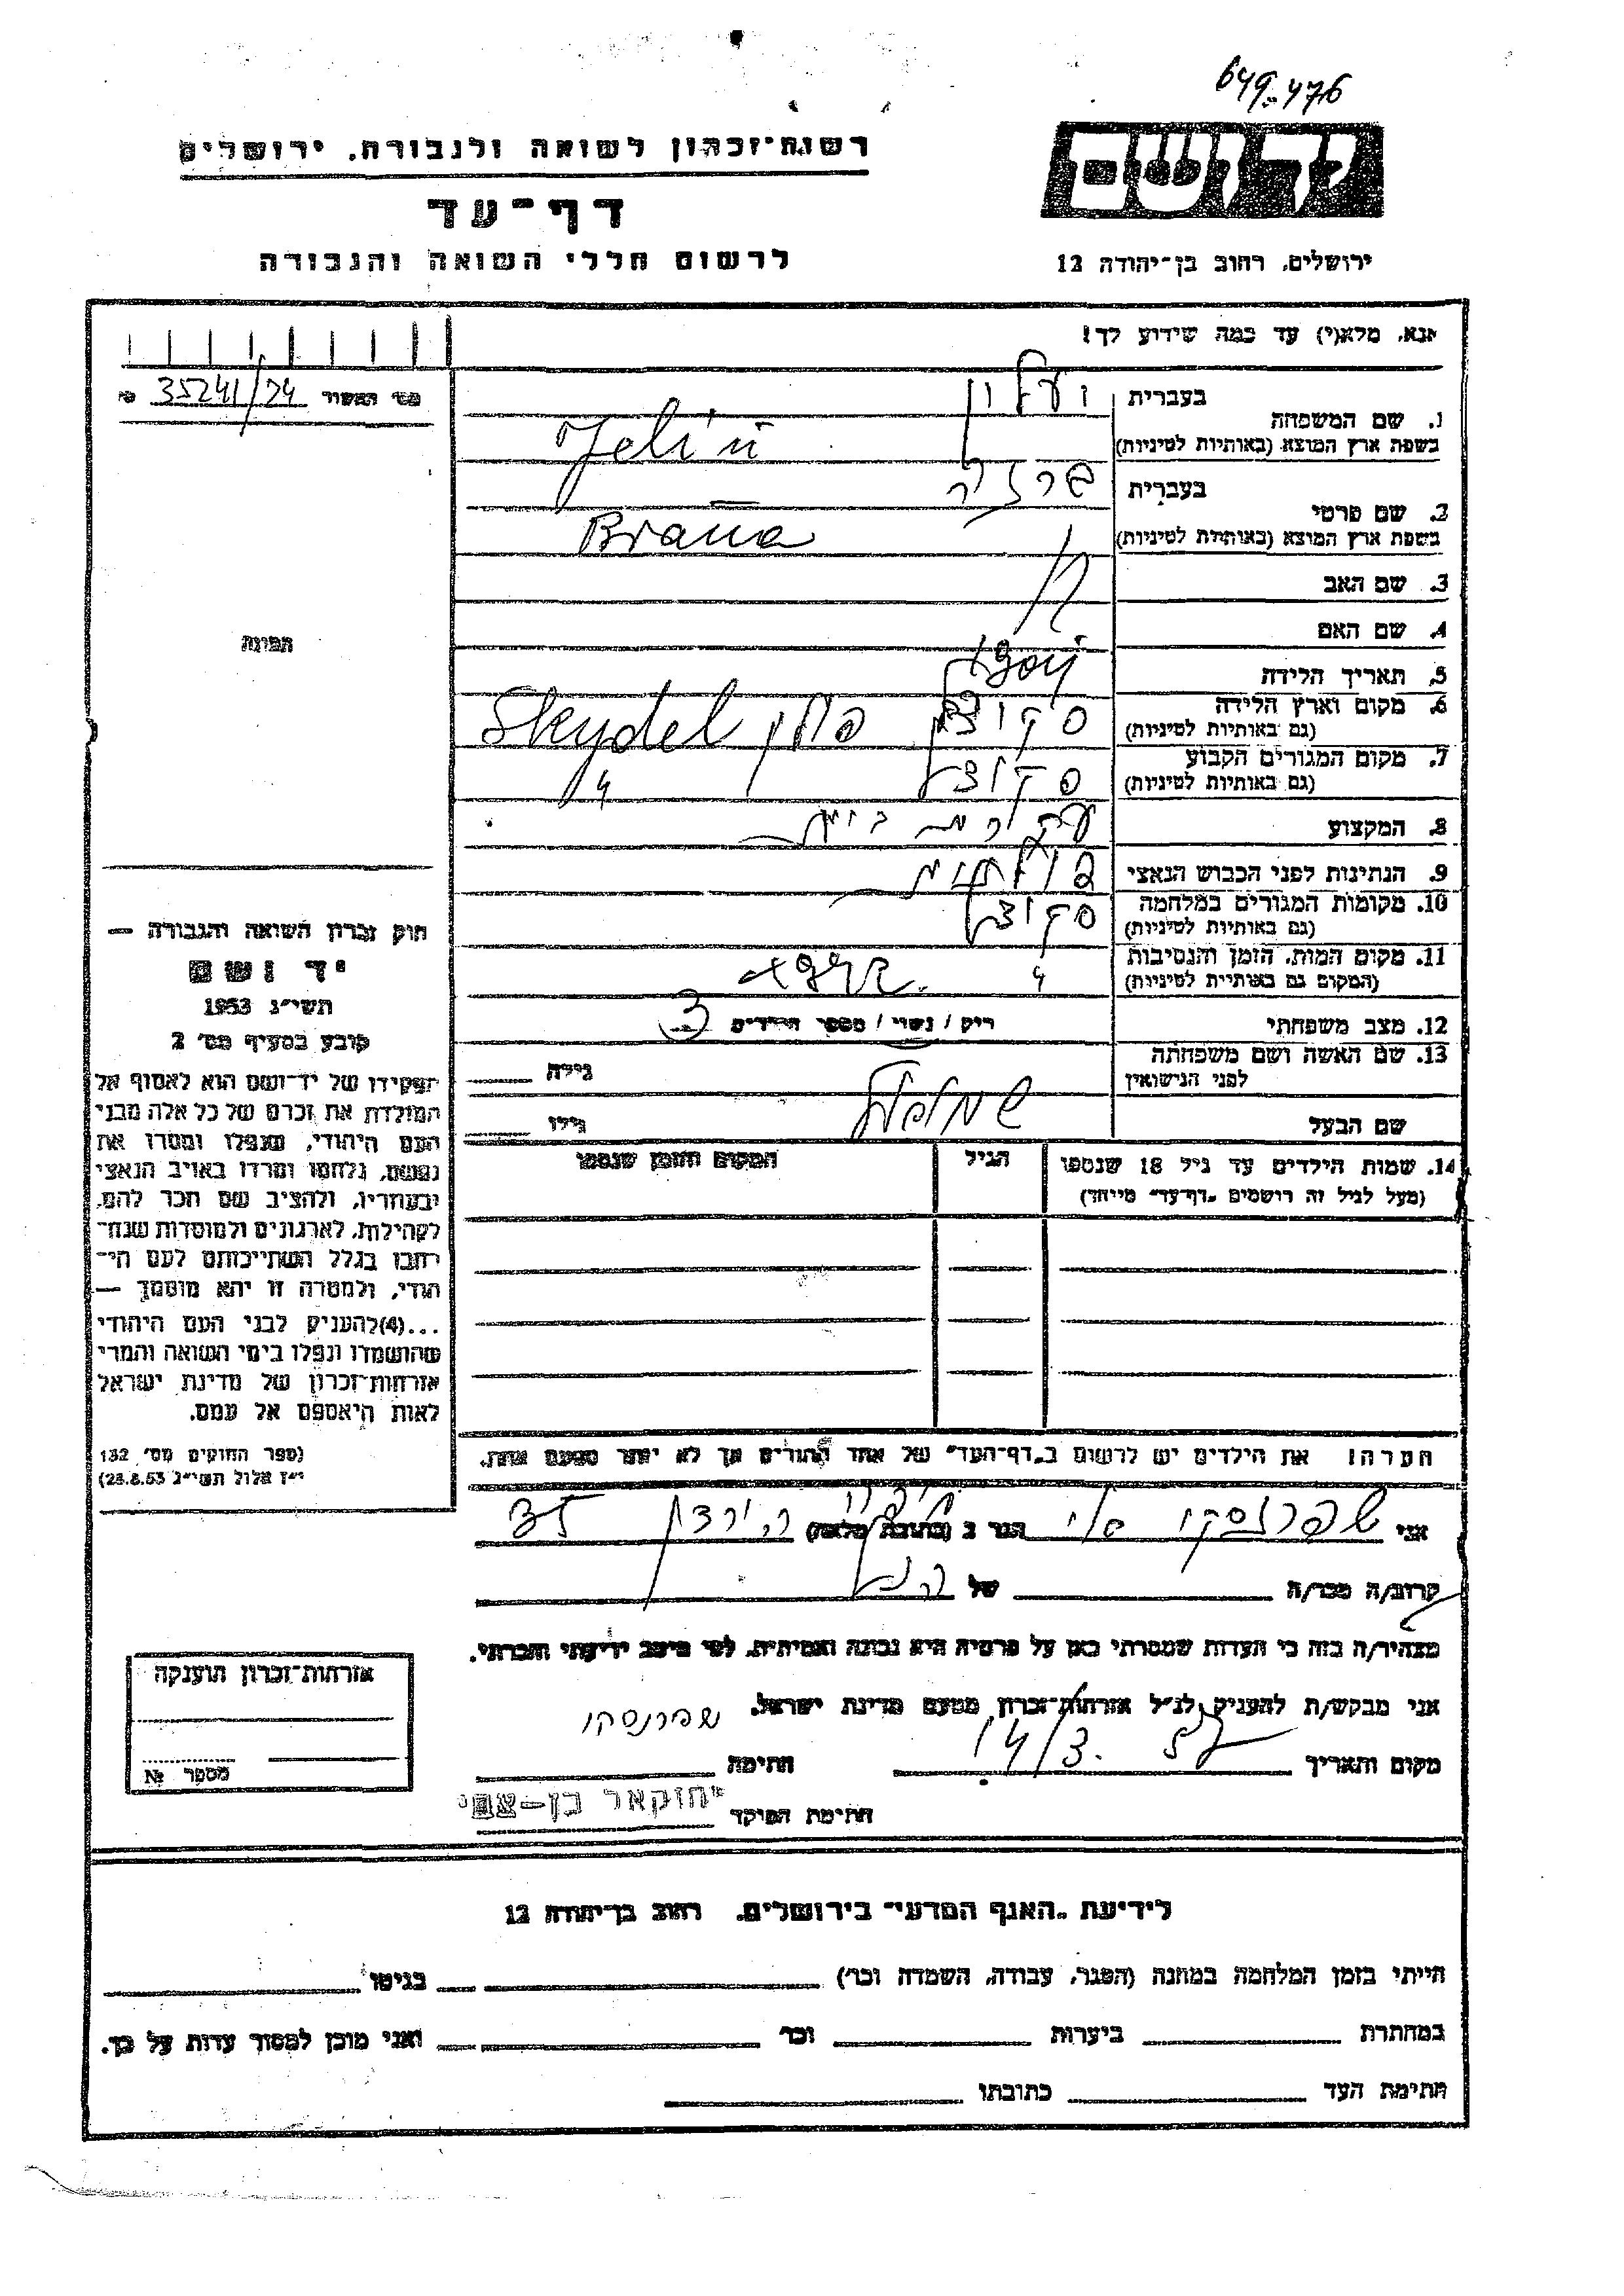 649-476
רשות־זכרון לשואה ולגבורה, ירושלים
דף־עד
לרשום חללי השואה והגבורה
יד ושם
ירושלים, רחוב בן־יהודה 12
אנא, מלא(י) עד כמה שידוע לך!
מס' האשור 35241/74
1. שם המשפחה
בעברית
בשפת ארץ המוצא (באותיות לטיניות) Jelin
2. שם פרטי
בעברית
בשפת ארץ המוצא (באותיות לטיניות) Brana
3. שם האב
4. שם האם
5. תאריך הלידה
6. מקום וארץ הלידה
(גם באותיות לטיניות) Skydel
7. מקום המגורים הקבוע
(גם באותיות לטיניות)
8. המקצוע עקרת בית
9. הנתינות לפני הכבוש הנאצי פולנית
10. מקומות המגורים במלחמה
(גם באותיות לטיניות)
11. מקום המות, הזמן והנסיבות
(המקום גם באותיות לטיניות)
12. מצב משפחתי רוק / נשוי / מספר הילדים 3
13. שם האשה ושם משפחתה
לפני הנישואין
גילה
שם הבעל
גילו
14. שמות הילדים עד גיל 18 שנספו
(מעל לגיל זה רושמים „דף־עד" מיוחד)
הגיל
המקום והזמן שנספו
חוק זכרון השואה והגבורה —
יד ושם
תשי״ג 1953
קובע בסעיף מס' 2
תפקידו של יד־ושם הוא לאסוף אל
המולדת את זכרם של כל אלה מבני
העם היהודי, שנפלו ומסרו את
נפשם, נלחמו ומרדו באויב הנאצי
ובעוזריו, ולהציב שם וזכר להם,
לקהילות, לארגונים ולמוסדות שנח־
רבו בגלל השתייכותם לעם הי־
הודי, ולמטרה זו יהא מוסמך —
...(4)להעניק לבני העם היהודי
שהושמדו ונפלו בימי השואה והמרי
אזרחות־זכרון של מדינת ישראל
לאות היאספם אל עמם.
(ספר החוקים מס' 132
י״ז אלול תשי״ג 28.8.53)
הערה! את הילדים יש לרשום ב„דף־העד" של אחד ההורים אך לא יותר מפעם אחת.
אני הגר ב (כתובת מלאה) הירדן 35
קרוב/ה מכר/ה של
מצהיר/ה בזה כי העדות שמסרתי כאן על פרטיה היא נכונה ואמיתית, לפי מיטב ידיעתי והכרתי.
אני מבקש/ת להעניק לנ״ל אזרחות־זכרון מטעם מדינת ישראל.
מקום ותאריך 14/3. 57 חתימה
חתימת הפוקד
אזרחות־זכרון הוענקה
מספר №
לידיעת „האגף המדעי" בירושלים. רחוב בן־יהודה 12
הייתי בזמן המלחמה במחנה (הסגר, עבודה, השמדה וכו') בגיטו
במחתרת ביערות וכו' ואני מוכן למסור עדות על כך.
חתימת העד כתובתו